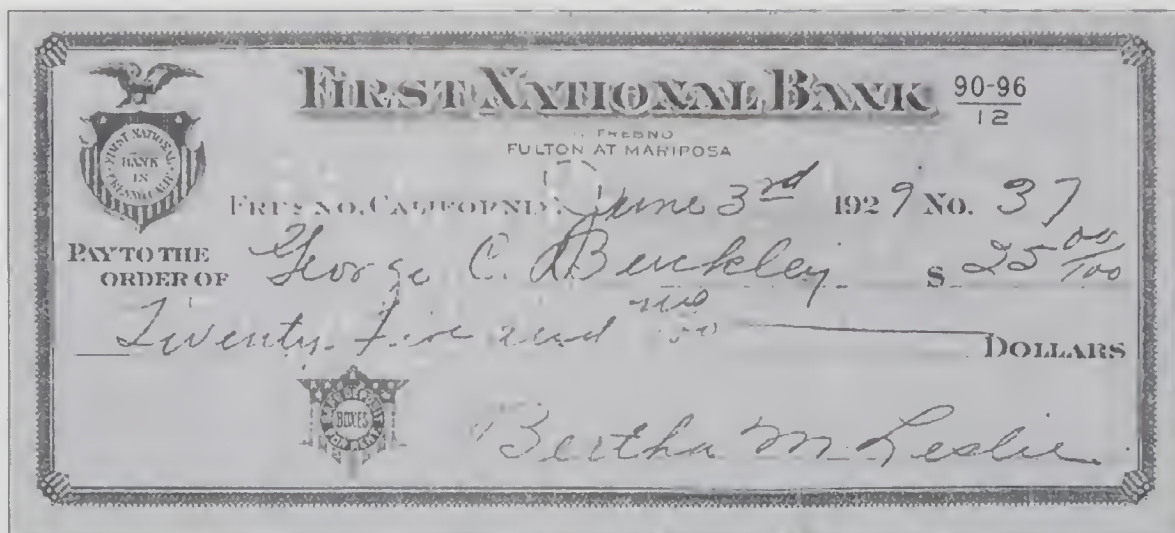 FIRST NATIONAL BANK 90-96
12
FRESNO
FULTON AT MARIPOSA
FIRST NATIONAL
BANK
IN
FRESNO, CALIFORNIA, June 3rd 1929 No. 37
PAY TO THE
ORDER OF George C. Berkley $ 25 00/100
Twenty Five and no/100 DOLLARS
SAFE DEPOSIT
BOXES
Bertha M Leslie